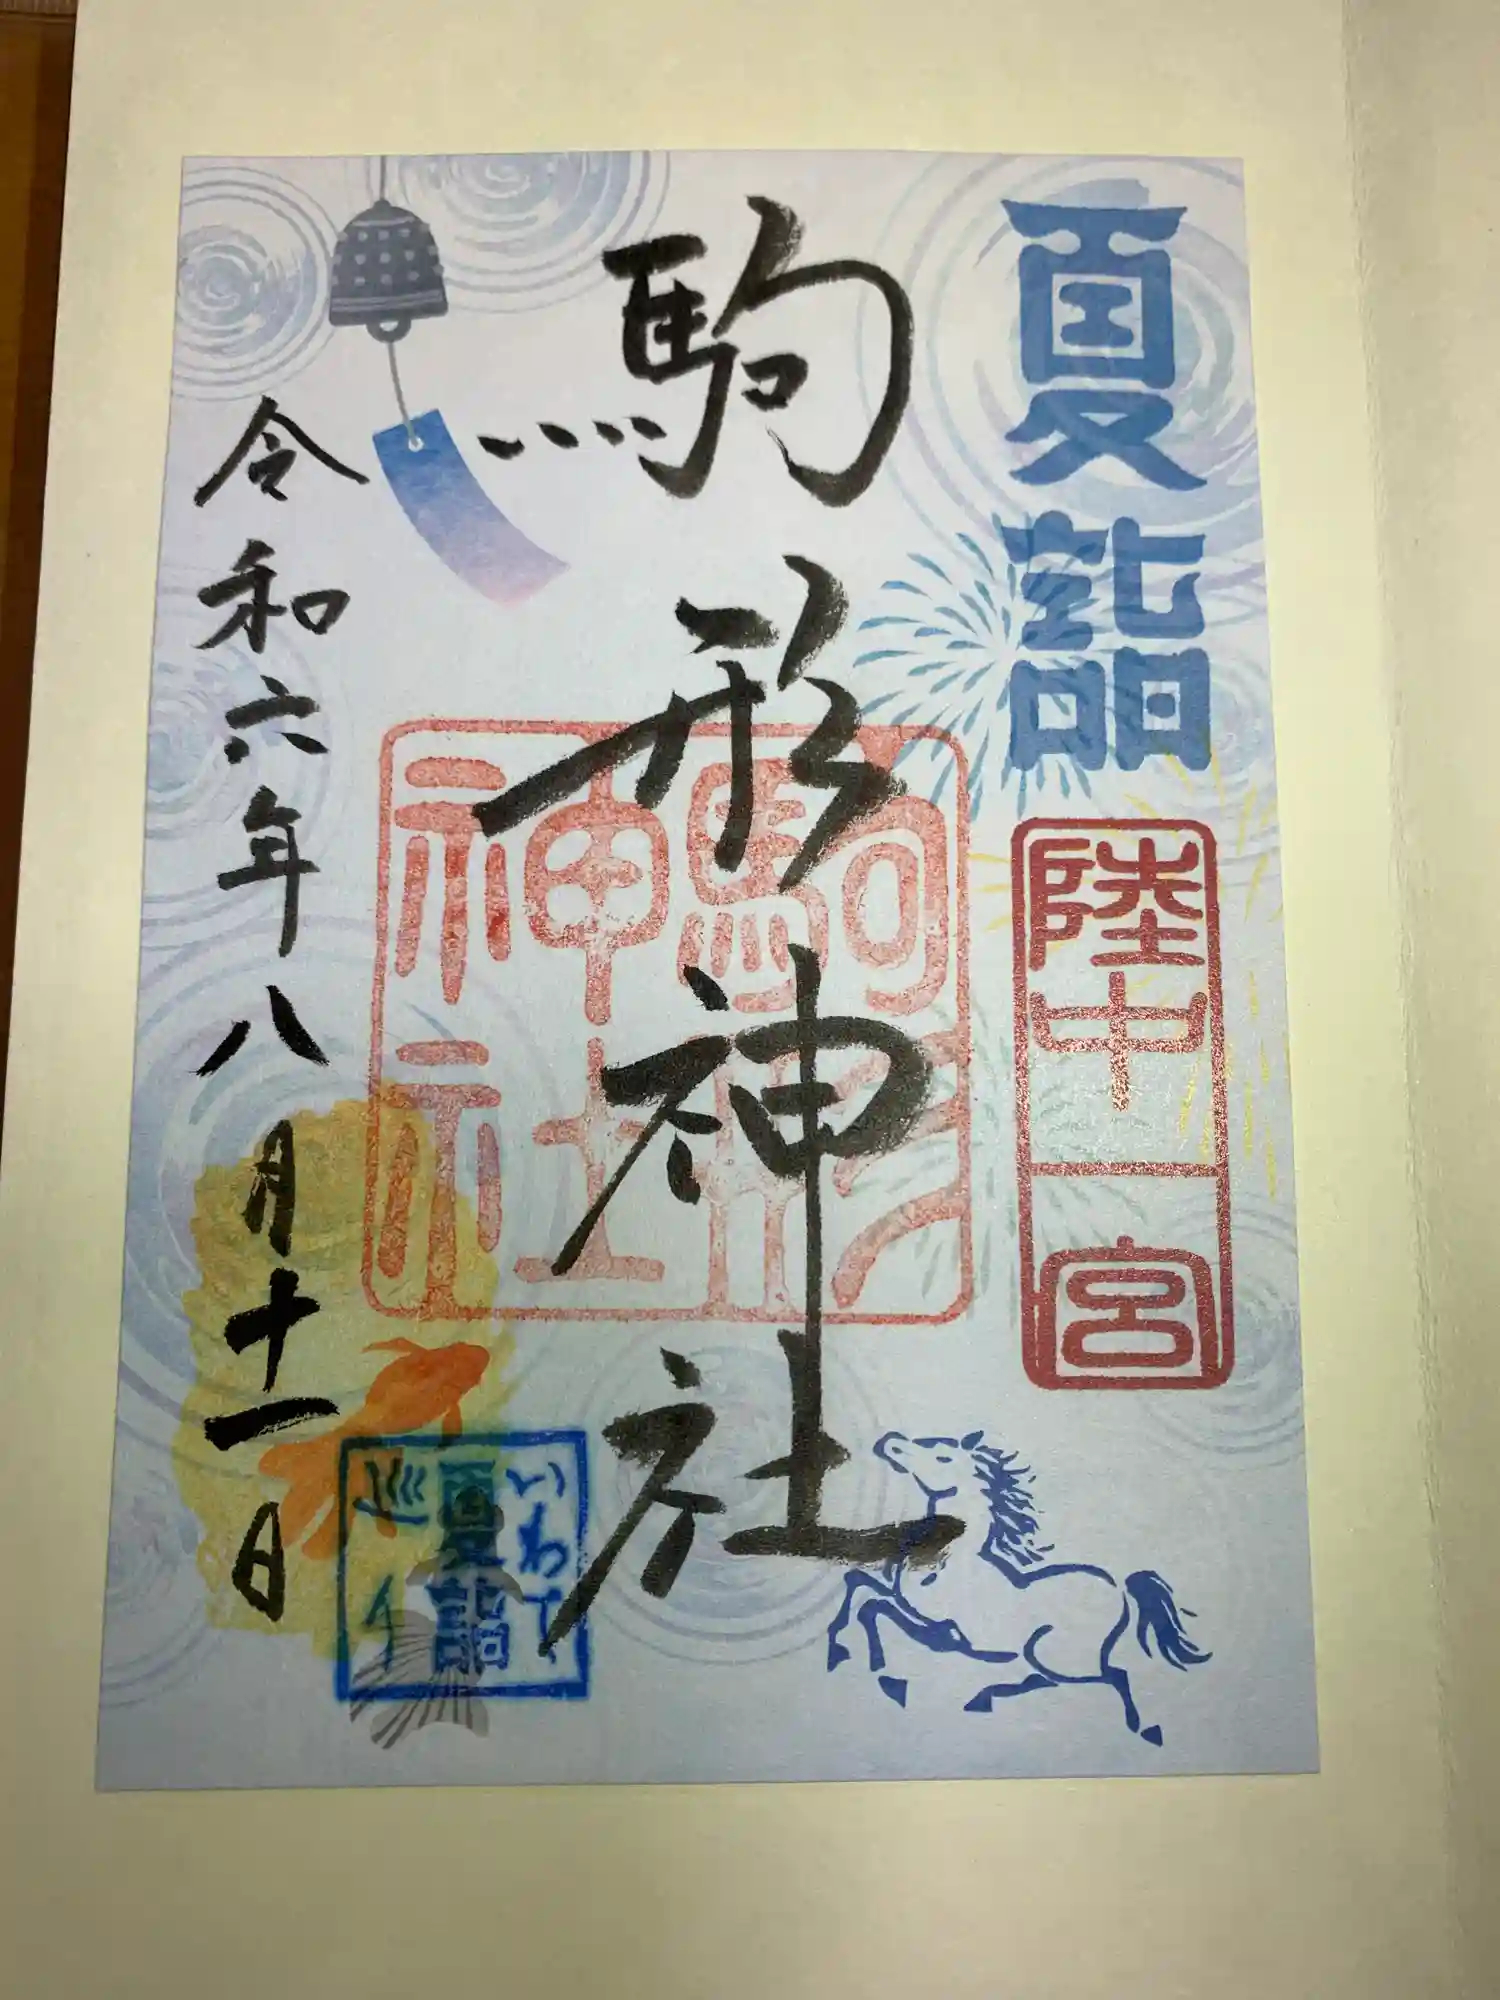 夏詣
陸中一宮
駒形神社
駒形
神社
令和六年八月十一日
いわて
夏詣
巡り